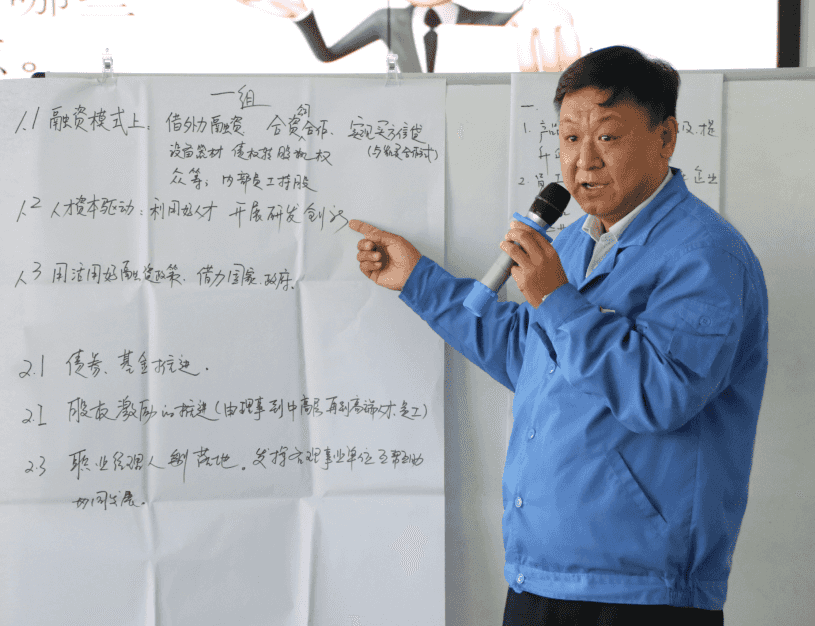 一组
1.1 融资模式上：借外力融资 合资合作. 实现买方信贷
设备器材 债权转股权 (与 合作式)
众筹；内部员工持股
1.2 人才资本驱动：利用好人才 开展研发创新
1.3 用活用好融资政策. 借力国家.政府.
2.1 债券、基金推进.
2.2 股权激励的推进(由理事到中高层再到高端人才 员工)
2.3 职业经理人制落地。发挥各理事业单位互帮互助
协同发展.
一.
1. 产品 级.提
升
2. 员工